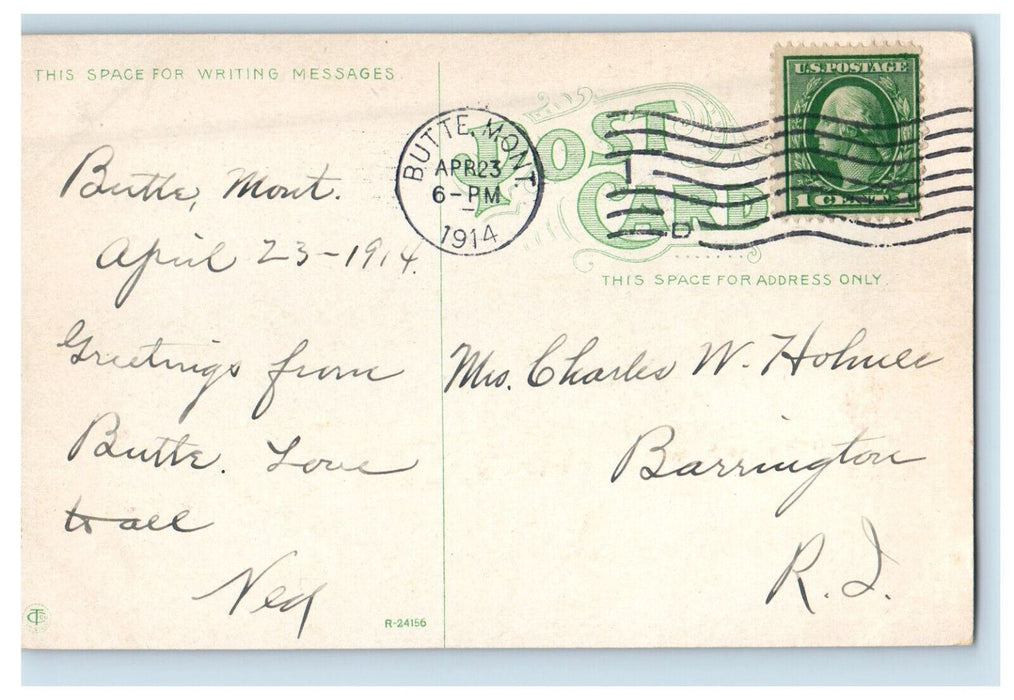 THIS SPACE FOR WRITING MESSAGES
POST CARD
THIS SPACE FOR ADDRESS ONLY
U.S. POSTAGE
1 CENT 1
BUTTE, MONT.
APR 23
6-PM
1914
1
D
Butte, Mont.
April 23-1914.
Greetings from
Butte. Love
to all
Ned
Mrs. Charles W. Holmes
Barrington
R.I.
R-24156